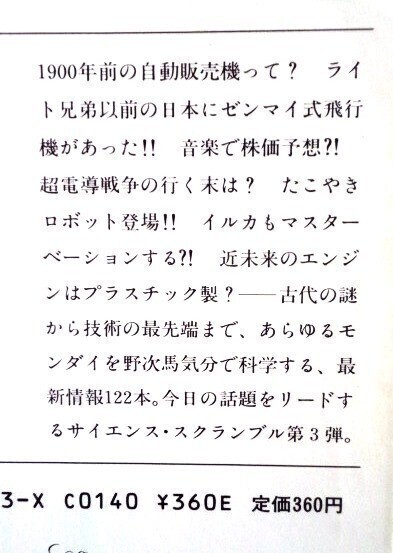 1900年前の自動販売機って？　ライ
ト兄弟以前の日本にゼンマイ式飛行
機があった!!　音楽で株価予想?!
超電導戦争の行く末は？　たこやき
ロボット登場!!　イルカもマスター
ベーションする?!　近未来のエンジ
ンはプラスチック製？――古代の謎
から技術の最先端まで、あらゆるモ
ンダイを野次馬気分で科学する、最
新情報122本。今日の話題をリードす
るサイエンス・スクランブル第３弾。
3-X C0140 ¥360E 定価360円